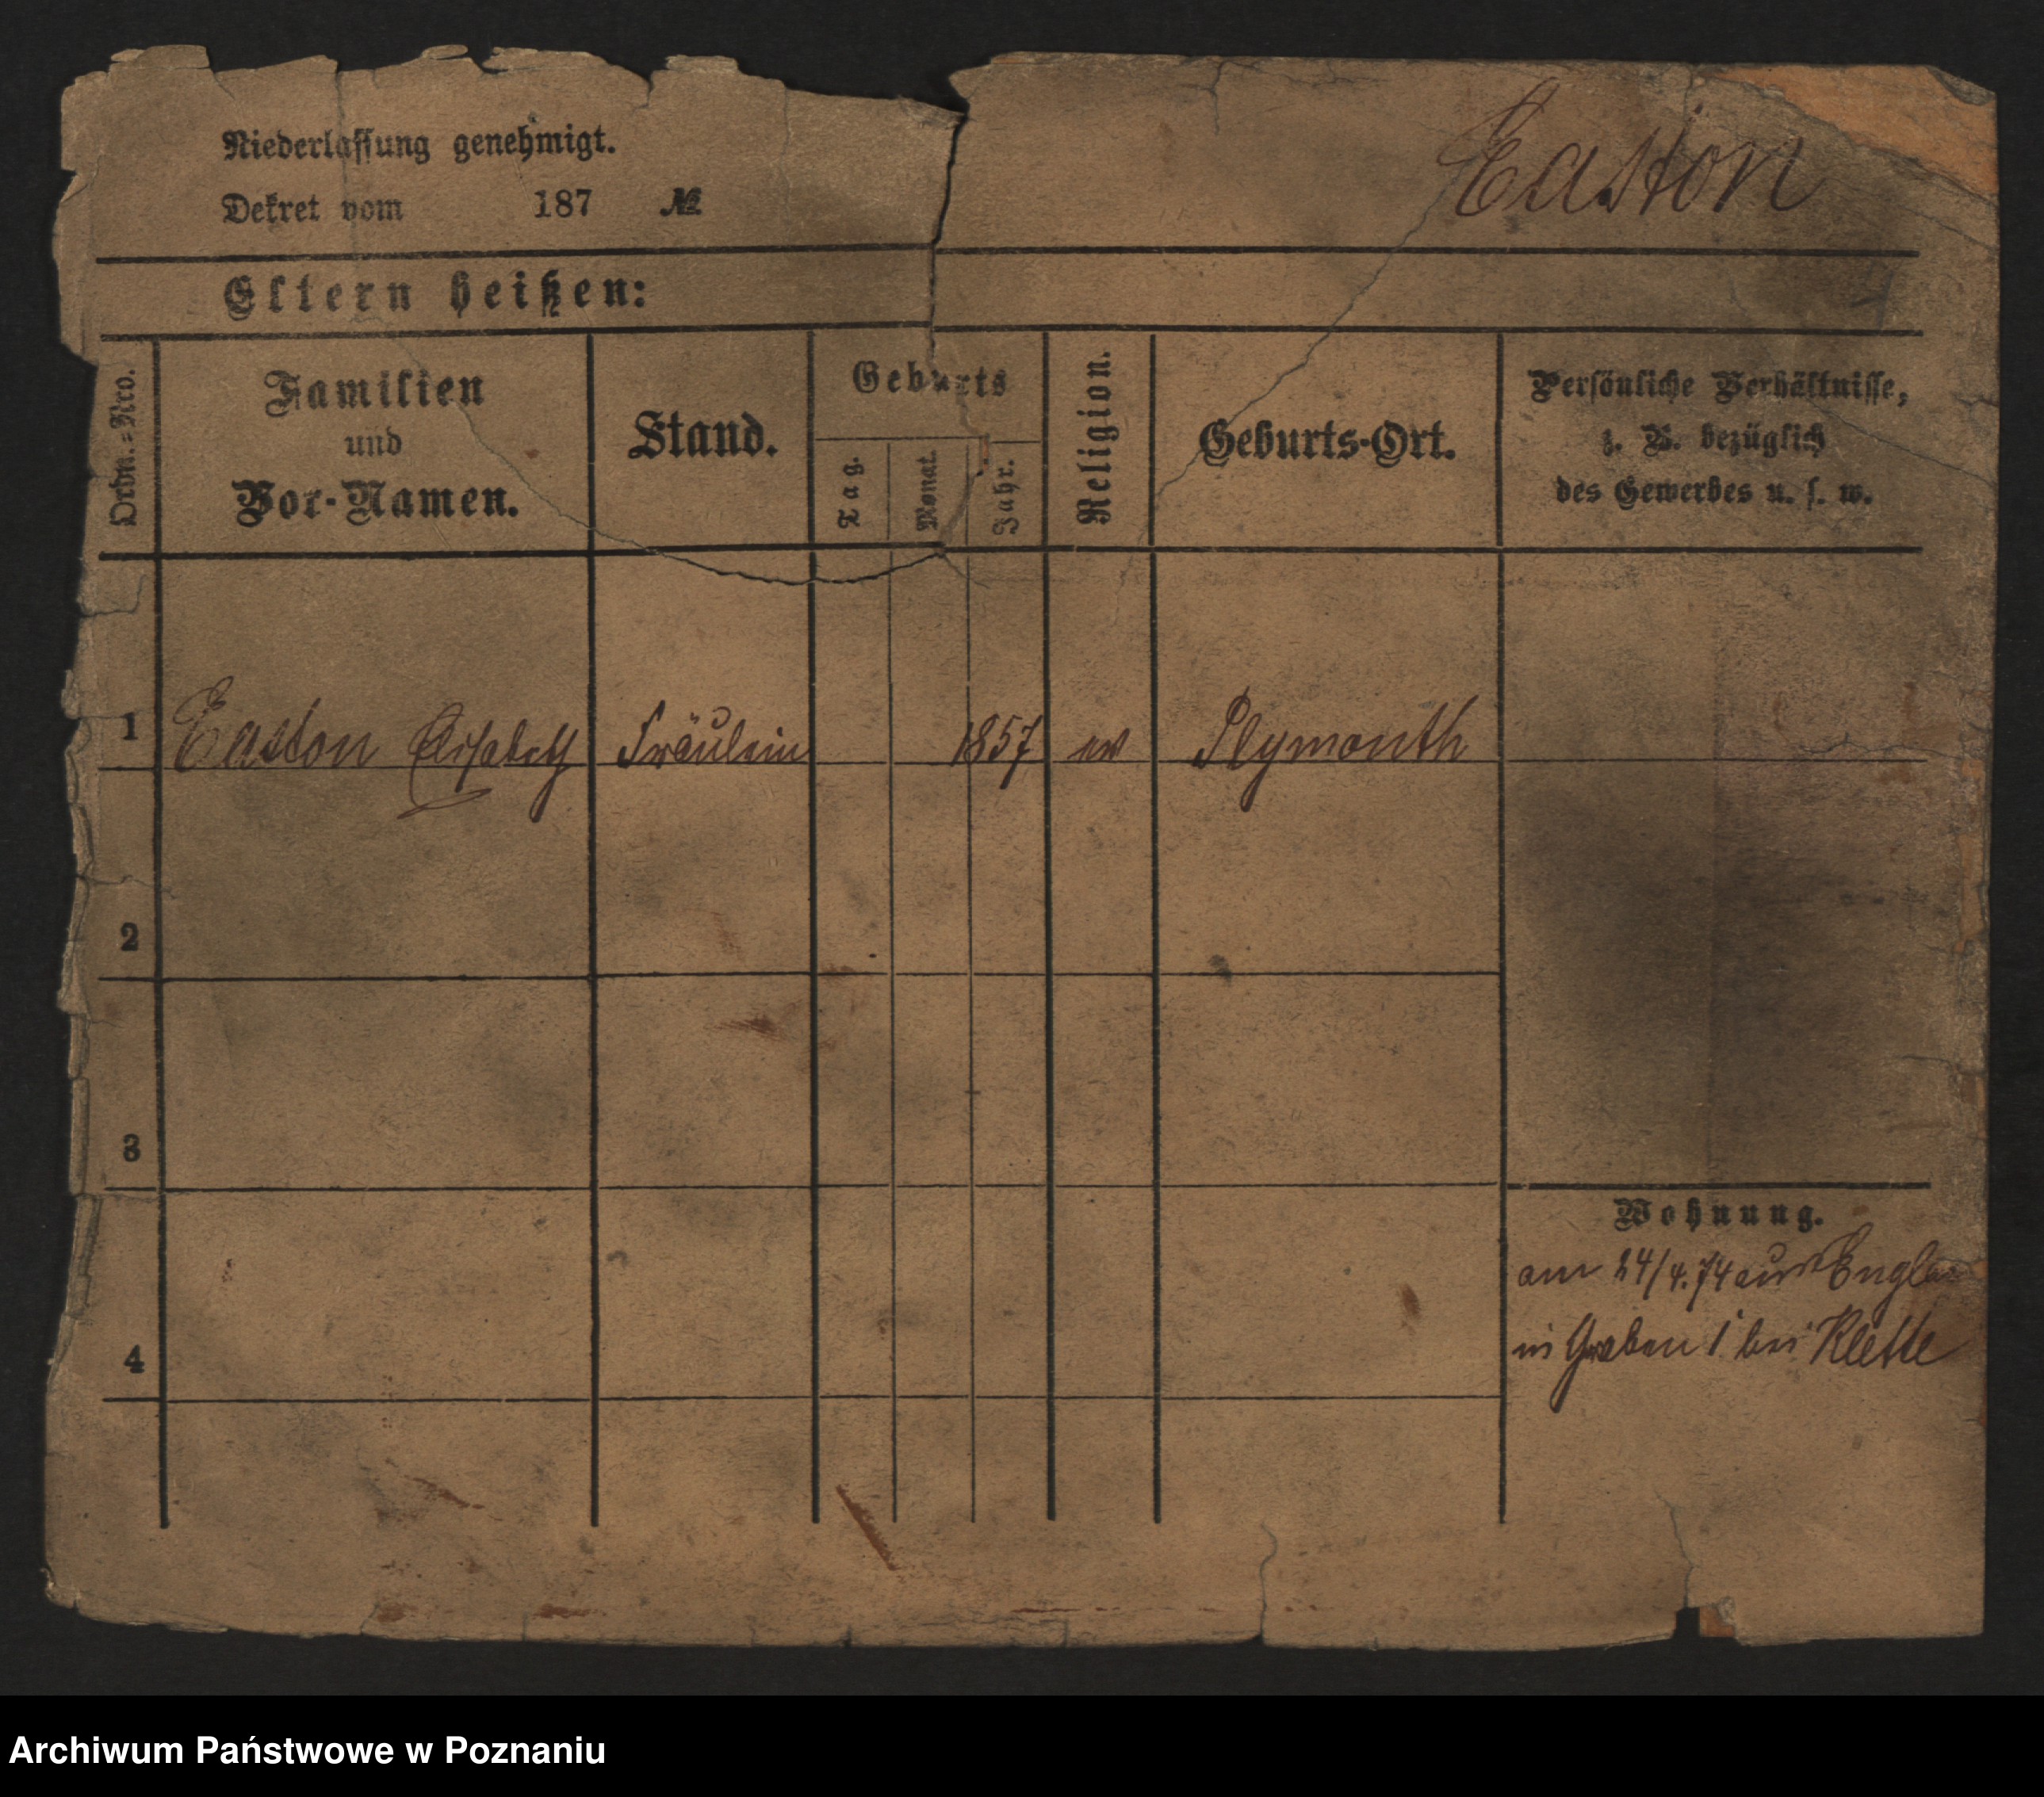 Easton
Niederlassung genehmigt.
Dekret vom 187 №
Eltern heißen:
Ordn.-Nro.
Familien
und
Vor-Namen.
Stand.
Geburts
Tag.
Monat.
Jahr.
Religion.
Geburts-Ort.
Persönliche Verhältnisse,
z. B. bezüglich
des Gewerbes u. s. w.
1 Easton Elisabeth Fräulein 1857 ev Plymouth
2
3
4
Wohnung.
am 24/4.74 aus England
in Graben 1 bei Klette
Archiwum Państwowe w Poznaniu